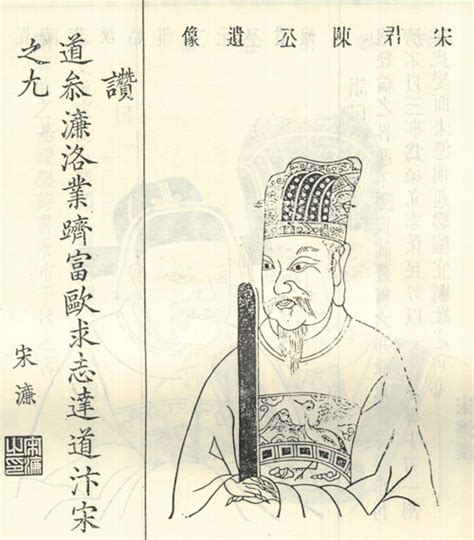 宋君陳公遺像
讚
道叅濂洛業躋富歐求志達道汴宋
之九
宋濂
宋濂之印